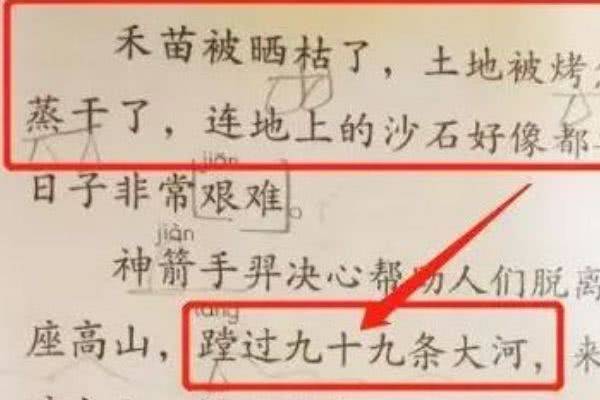 禾苗被晒枯了，土地被烤
蒸干了，连地上的沙石好像都
jiān
日子非常艰难。
jiàn
神箭手羿决心帮助人们脱离
tāng
座高山，蹚过九十九条大河，来